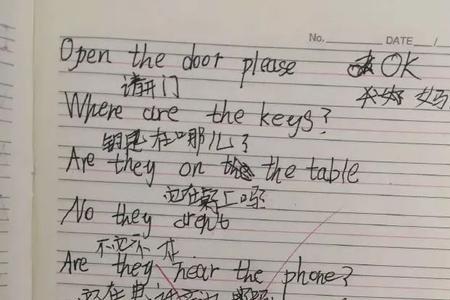 No. DATE /
Open the door please OK
请开门
Where are the keys?
钥匙在哪儿?
Are they on the the table
它在桌上吗
No they aren't
不它不在
Are they near the phone?